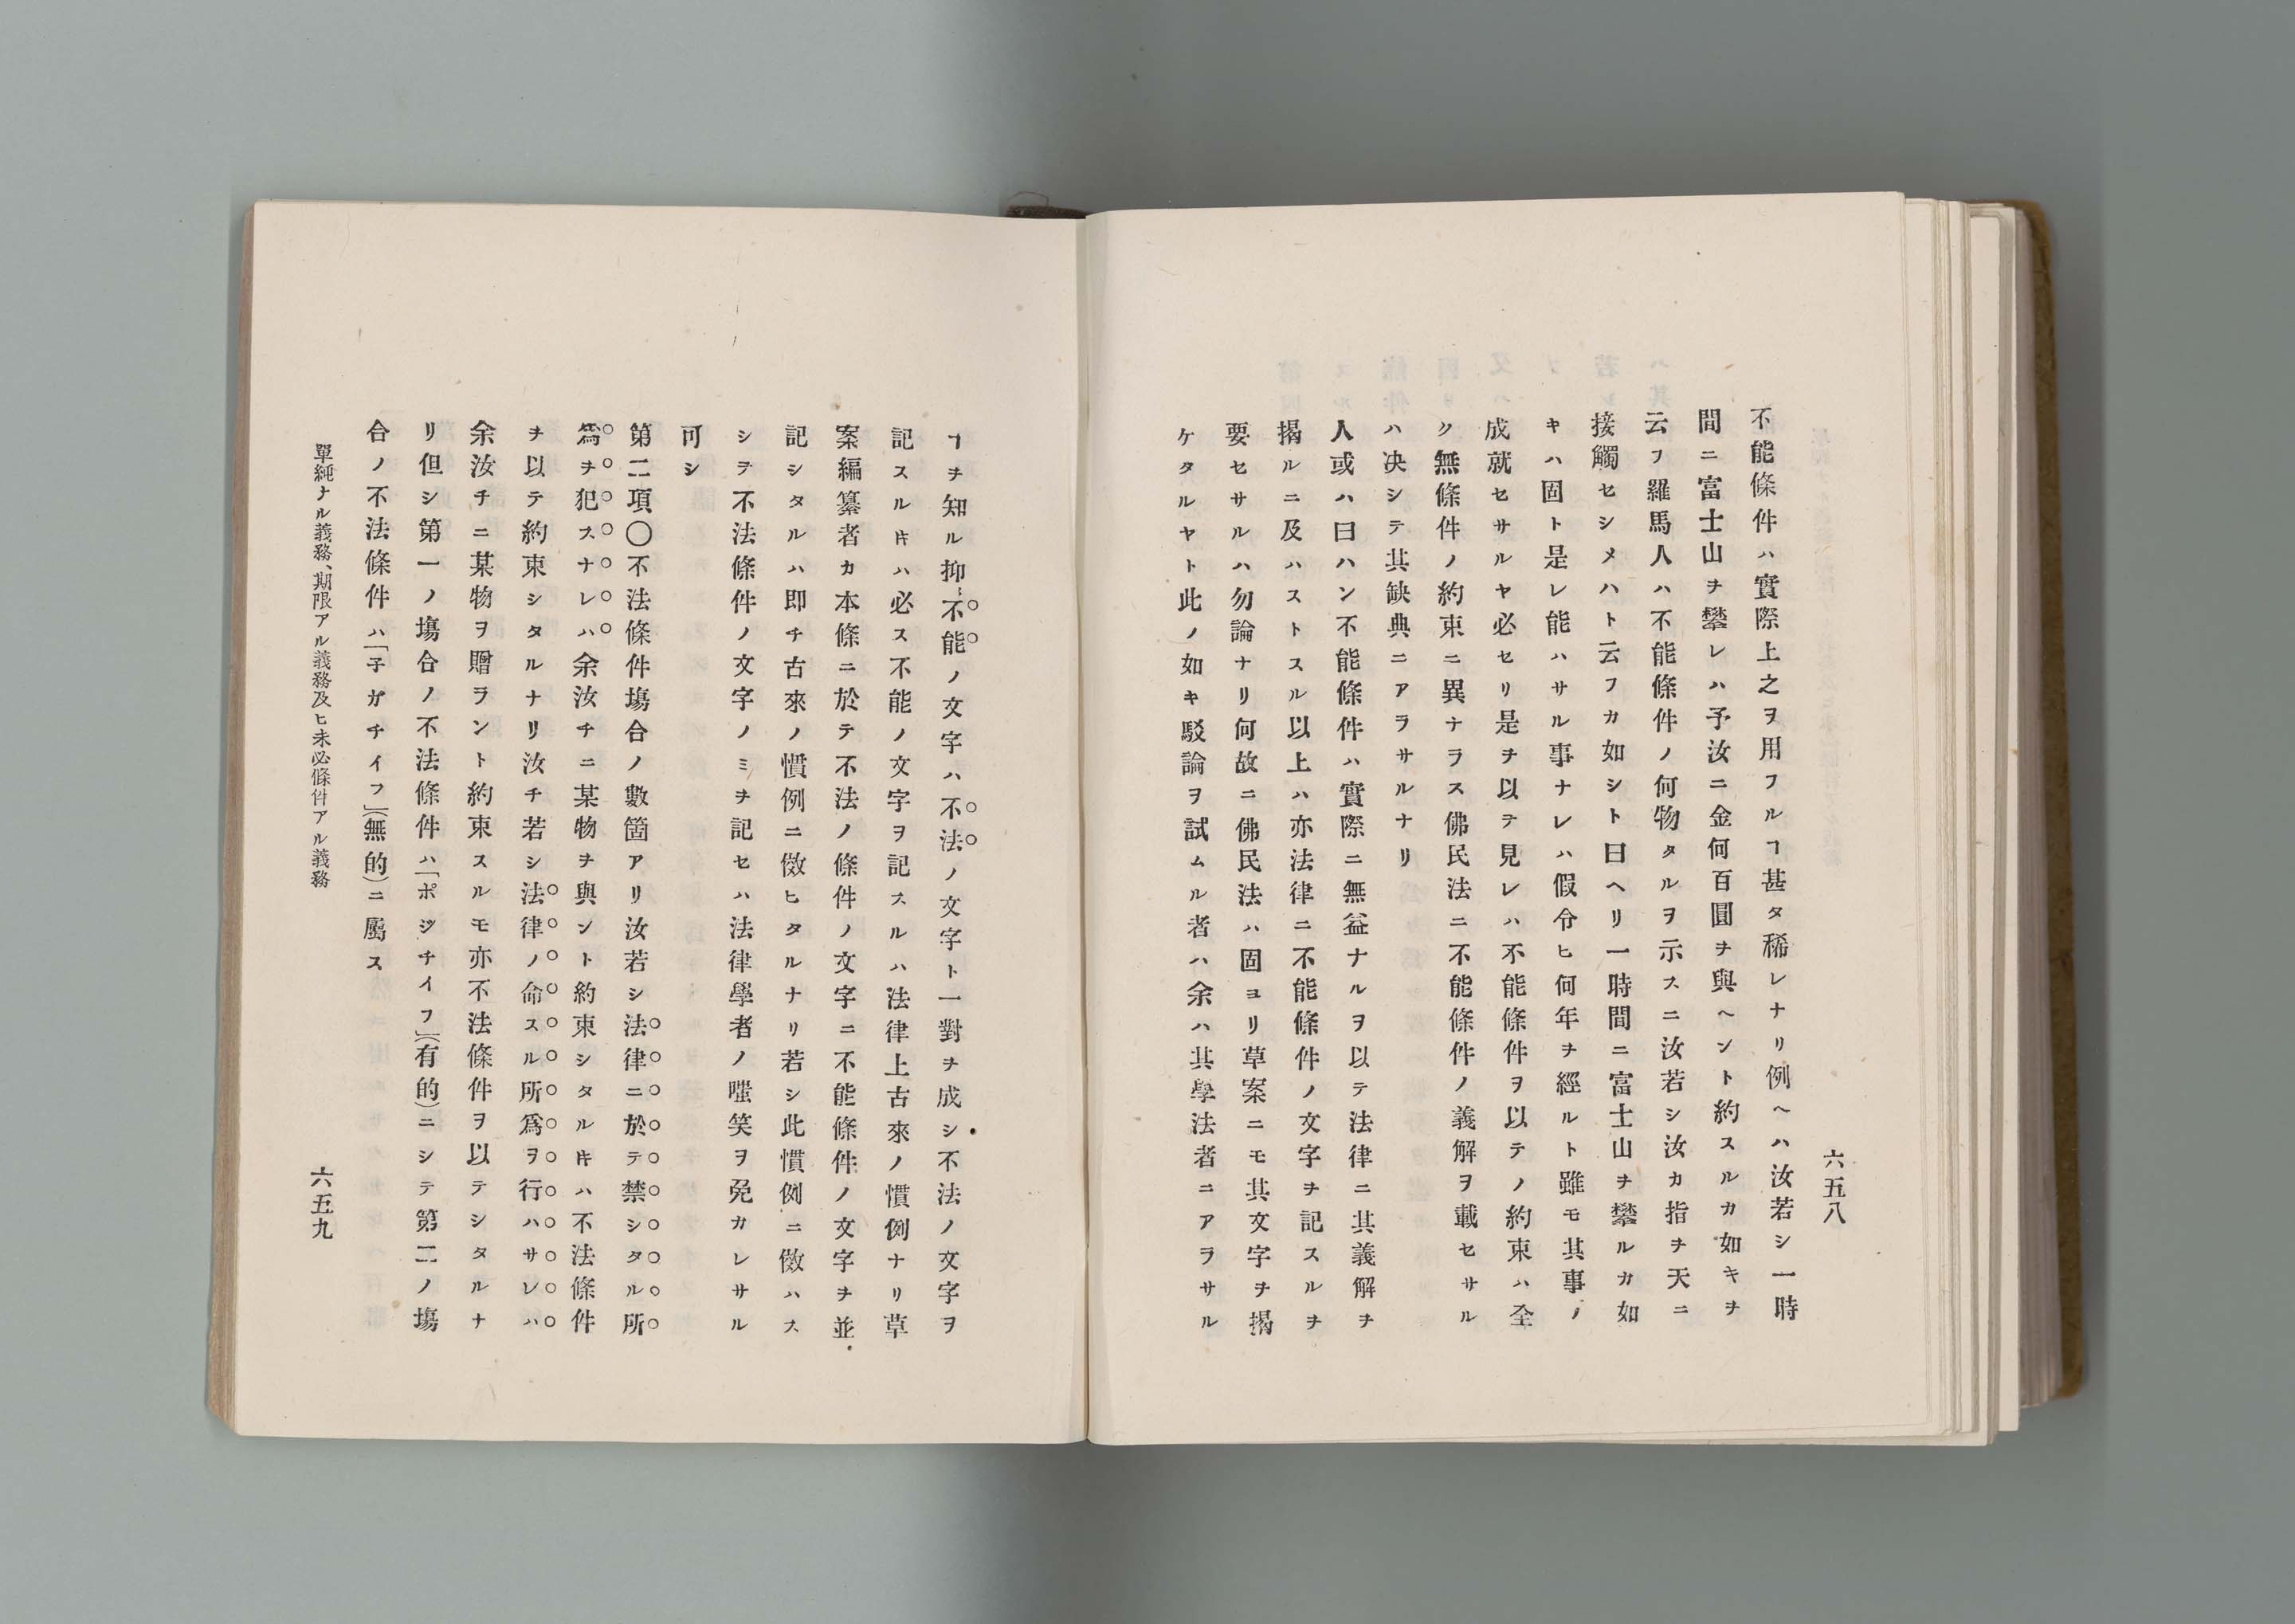 六五八
不能條件ハ實際上之ヲ用フルヿ甚タ稀レナリ例ヘハ汝若シ一時
間ニ富士山ヲ攀レハ予汝ニ金何百圓ヲ與ヘント約スルカ如キヲ
云フ羅馬人ハ不能條件ノ何物タルヲ示スニ汝若シ汝カ指ヲ天ニ
接觸セシメハト云フカ如シト曰ヘリ一時間ニ富士山ヲ攀ルカ如
キハ固ト是レ能ハサル事ナレハ假令ヒ何年ヲ經ルト雖モ其事ノ
成就セサルヤ必セリ是ヲ以テ見レハ不能條件ヲ以テノ約束ハ全
ク無條件ノ約束ニ異ナラス佛民法ニ不能條件ノ義解ヲ載セサル
ハ决シテ其缺典ニアラサルナリ
人或ハ曰ハン不能條件ハ實際ニ無益ナルヲ以テ法律ニ其義解ヲ
揭ルニ及ハストスル以上ハ亦法律ニ不能條件ノ文字ヲ記スルヲ
要セサルハ勿論ナリ何故ニ佛民法ハ固ヨリ草案ニモ其文字ヲ揭
ケタルヤト此ノ如キ駁論ヲ試ムル者ハ余ハ其學法者ニアラサル
ヿヲ知ル抑不能ノ文字ハ不法ノ文字ト一對ヲ成シ不法ノ文字ヲ
記スルㇳキハ必ス不能ノ文字ヲ記スルハ法律上古來ノ慣例ナリ草
案編纂者カ本條ニ於テ不法ノ條件ノ文字ニ不能條件ノ文字ヲ並
記シタルハ即チ古來ノ慣例ニ傚ヒタルナリ若シ此慣例ニ傚ハス
シテ不法條件ノ文字ノミヲ記セハ法律學者ノ嗤笑ヲ免カレサル
可シ
第二項〇不法條件塲合ノ數箇アリ汝若シ法律ニ於テ禁シタル所
爲ヲ犯スナレハ余汝チニ某物ヲ與ント約束シタルㇳキハ不法條件
ヲ以テ約束シタルナリ汝チ若シ法律ノ命スル所爲ヲ行ハサレハ
余汝チニ某物ヲ贈ラント約束スルモ亦不法條件ヲ以テシタルナ
リ但シ第一ノ塲合ノ不法條件ハ「ポジチイフ」(有的)ニシテ第二ノ塲
合ノ不法條件ハ「子ガチイフ」(無的)ニ屬ス
單純ナル義務、期限アル義務及ヒ未必條件アル義務
六五九